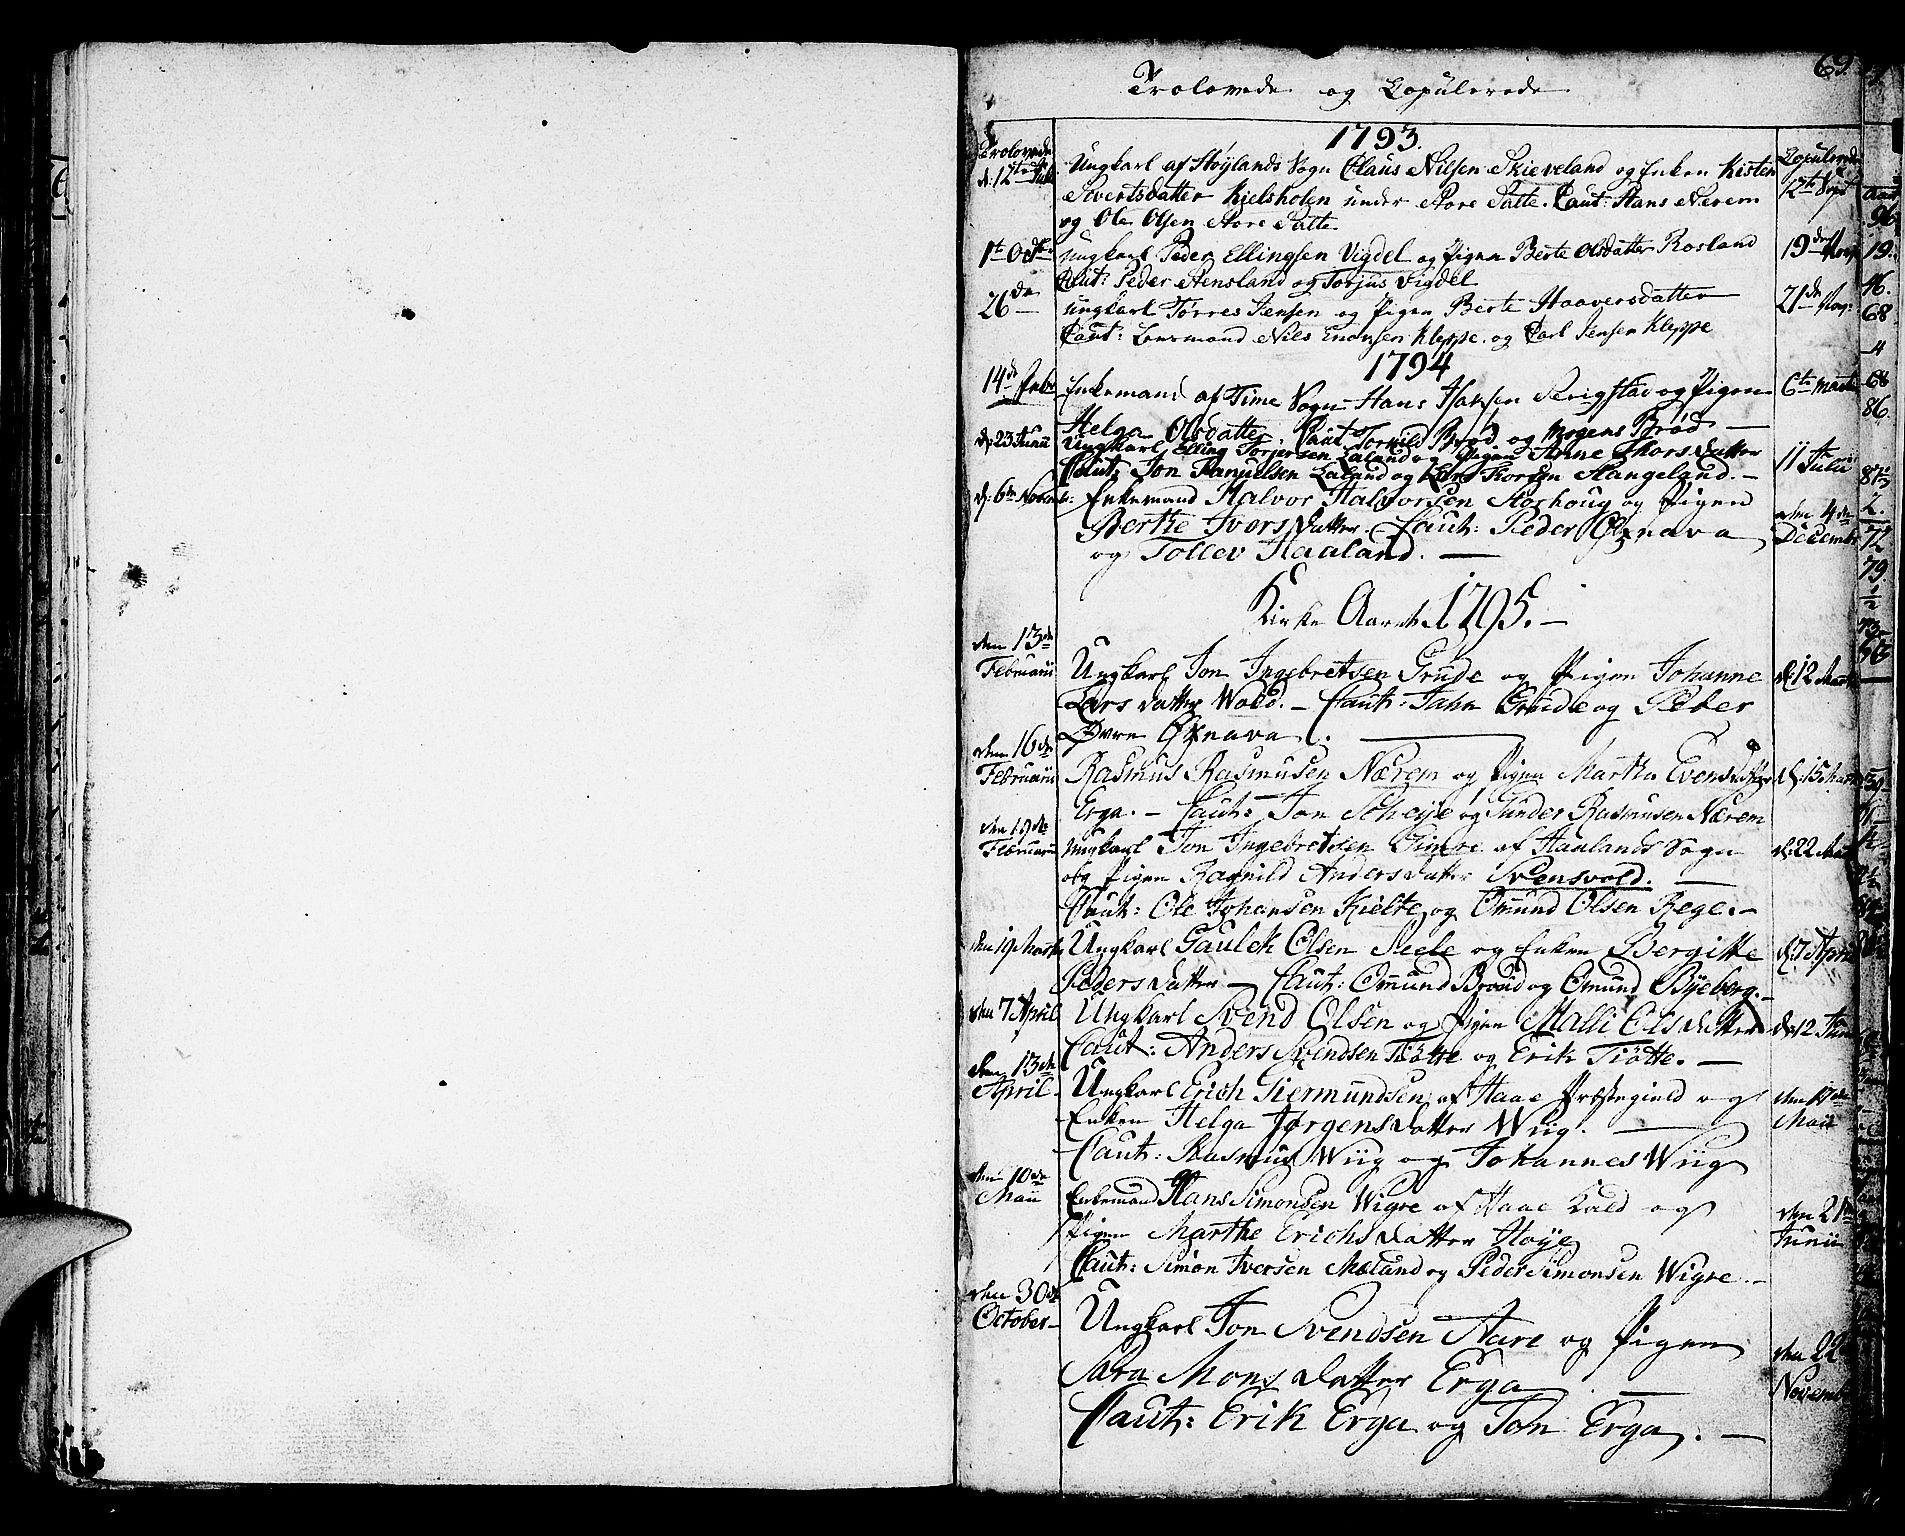 69.
Trolovede og Copulerede
1793.
Trolovede
d: 12te Juli
Ungkarl af Høylands Sogn Claus Nilsen Skieveland og Enken Kisten
Sivertsdatter Kielsholen under Store Salte. Caut: Hans Nærem
og Ole Olsen Store Salte
Copulerede
12te Sept
1te Octbr
Ungkarl Peder Ellingsen Vigdel og Pigen Berte Olsdatter Rosland
Caut: Peder Stensland og Torjus Vigdel
19de Nov:
26de
Ungkarl Torres Jensen og Pigen Berte Haaversdatter
Caut: Lensmand Nils Enonsen Kleppe. og Carl Jensen Kleppe
21de Nov:
1794
14de Febr
Enkemand af Time Sogn Hans Hansen Serigstad og Pigen
Helga Olsdatter. Caut: Torkild Brød og Mogens Brød
6te Martii
d: 23 Junii
Ungkarl Elling Torjersen Laland og Pigen Anne Thorsdatter
Caut: Jon Danjelsen Laland og Lars Thorsen Stangeland.
11te Julii
d: 6te Novem:
Enkemand Halvor Halvorsen Storhoug og Pigen
Berthe Iversdatter. Caut: Peder Øxnava
og Tollev Haaland.
den 4de
December
Kirke Aaret 1795.
den 13de
Februarii
Ungkarl Jon Ingebretsen Grude og Pigen Johanne
Larsdatter Wold. Caut: Jahn Grude og Peder
Øvre Øxnava.
d: 12 Martii
den 16de
Februarii
Rasmus Rasmusen Nærem og Pigen Martha Evensdatter
Erga. Caut: Jon Scheije og Gunder Rasmusen Nærem
d: 15 Martii
den 19de
Februarii
Ungkarl Jon Ingebretsen Gimre af Haalands Sogn
og Pigen Ragnild Andersdatter Svensvold.
Caut: Ole Johansen Kielte og Omund Olsen Rege.
d: 22 Martii
den 19 Martii
Ungkarl Gaulek Olsen Seele og Enken Bergitte
Pedersdatter Caut: Omund Broud og Omund Byeberg.
d: 7 April
den 7 April
Ungkarl Svend Olsen og Pigen Malli Olsdatter
Caut: Anders Svendsen Tiøtte og Erik Tiøtte.
d: 12 Junii
den 13de
April
Ungkarl Erich Giermundsen af Haae Præstegield og
Enken Helga Jørgensdatter Wiig.
Caut: Rasmus Wiig og Johannes Wiig
den 17de
Maii
den 10de
Maii
Enkemand Hans Simonsen Wigre af Haae Kald og
Pigen Marthe Erichsdatter Høye
Caut: Simon Iversen Mæland og Peder Simonsen Wigre.
den 21de
Junii
den 30de
October
Ungkarl Jon Svendsen Aare og Pigen
Sara Monsdatter Erga
Caut: Erik Erga og Jon Erga.
den 22
Novemb